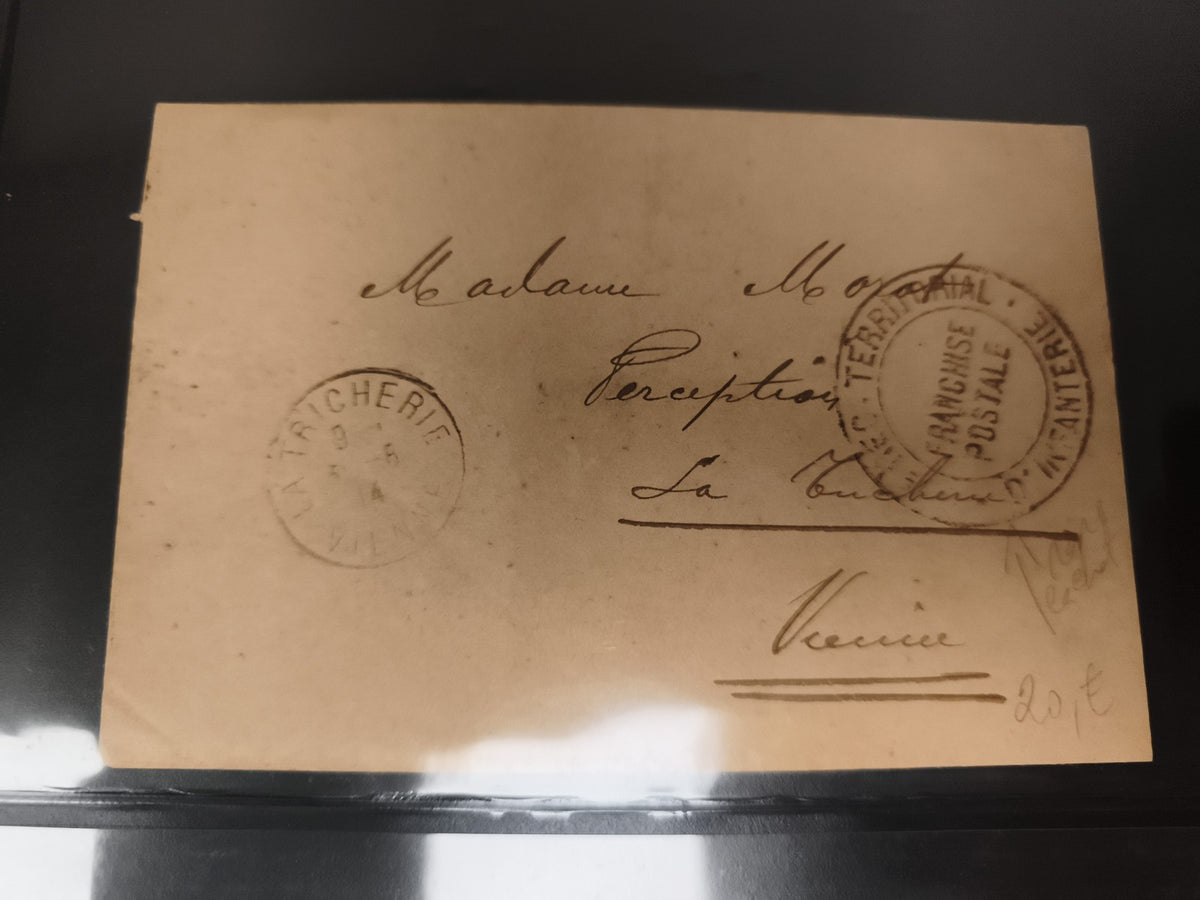 Madame
Perception
La Tricherie
Vienne
LA TRICHERIE
VIENNE
TERRITORIAL · INFANTERIE
FRANCHISE
POSTALE
20,€